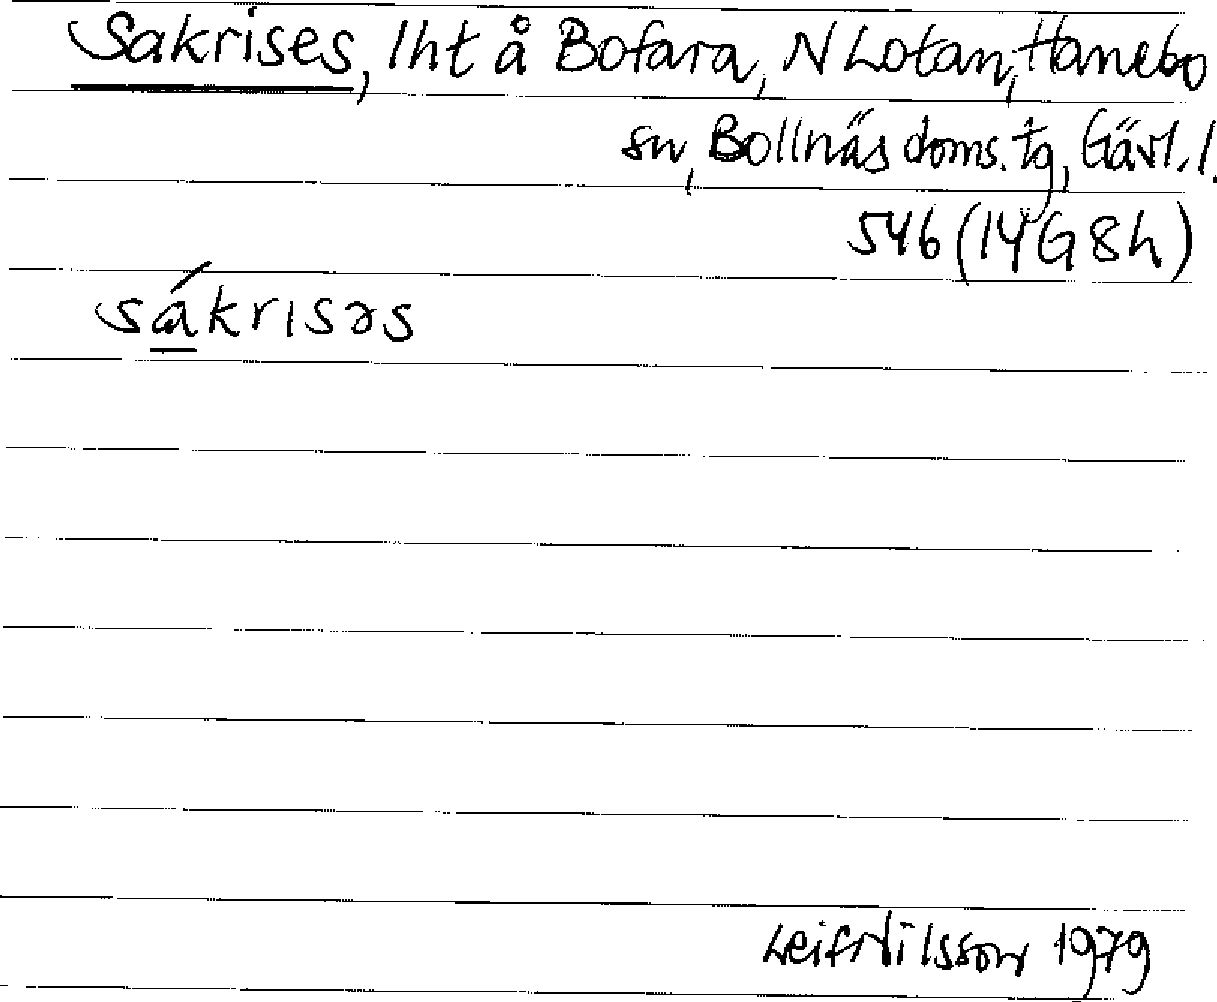 Sakrises, lht å Bofara, N Lotan, Hanebo
sn, Bollnäs doms. tg, Gävl. l.
546 (14G8h)
sákrisəs
Leif Nilsson 1979